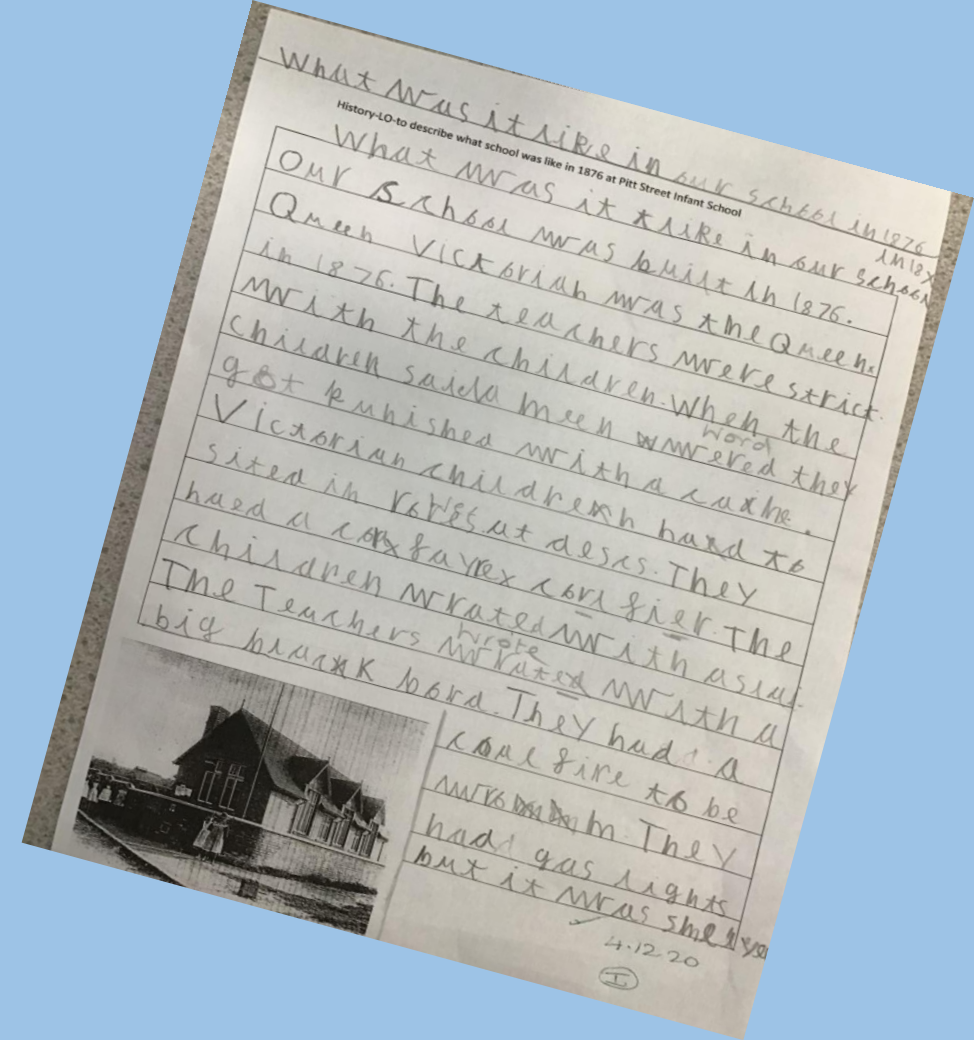 What was it like in our school in 1876
History-LO-to describe what school was like in 1876 at Pitt Street Infant School
What was it like in our school
in 187
Our School was built in 1876.
Queen Victorian was the Queen.
in 1876. The teachers were strict.
with the children. When the
children saida meen wered they
word
got punished with a caine.
Victorian children had to
sited in rows at descs. They
haed a cori fier. The
children wrated with a slat.
The Teachers wrated with a
wrote
big blaick bord. They had a
coal fire to be
wrom. They
had gas lights
but it was smelye
4.12.20
I